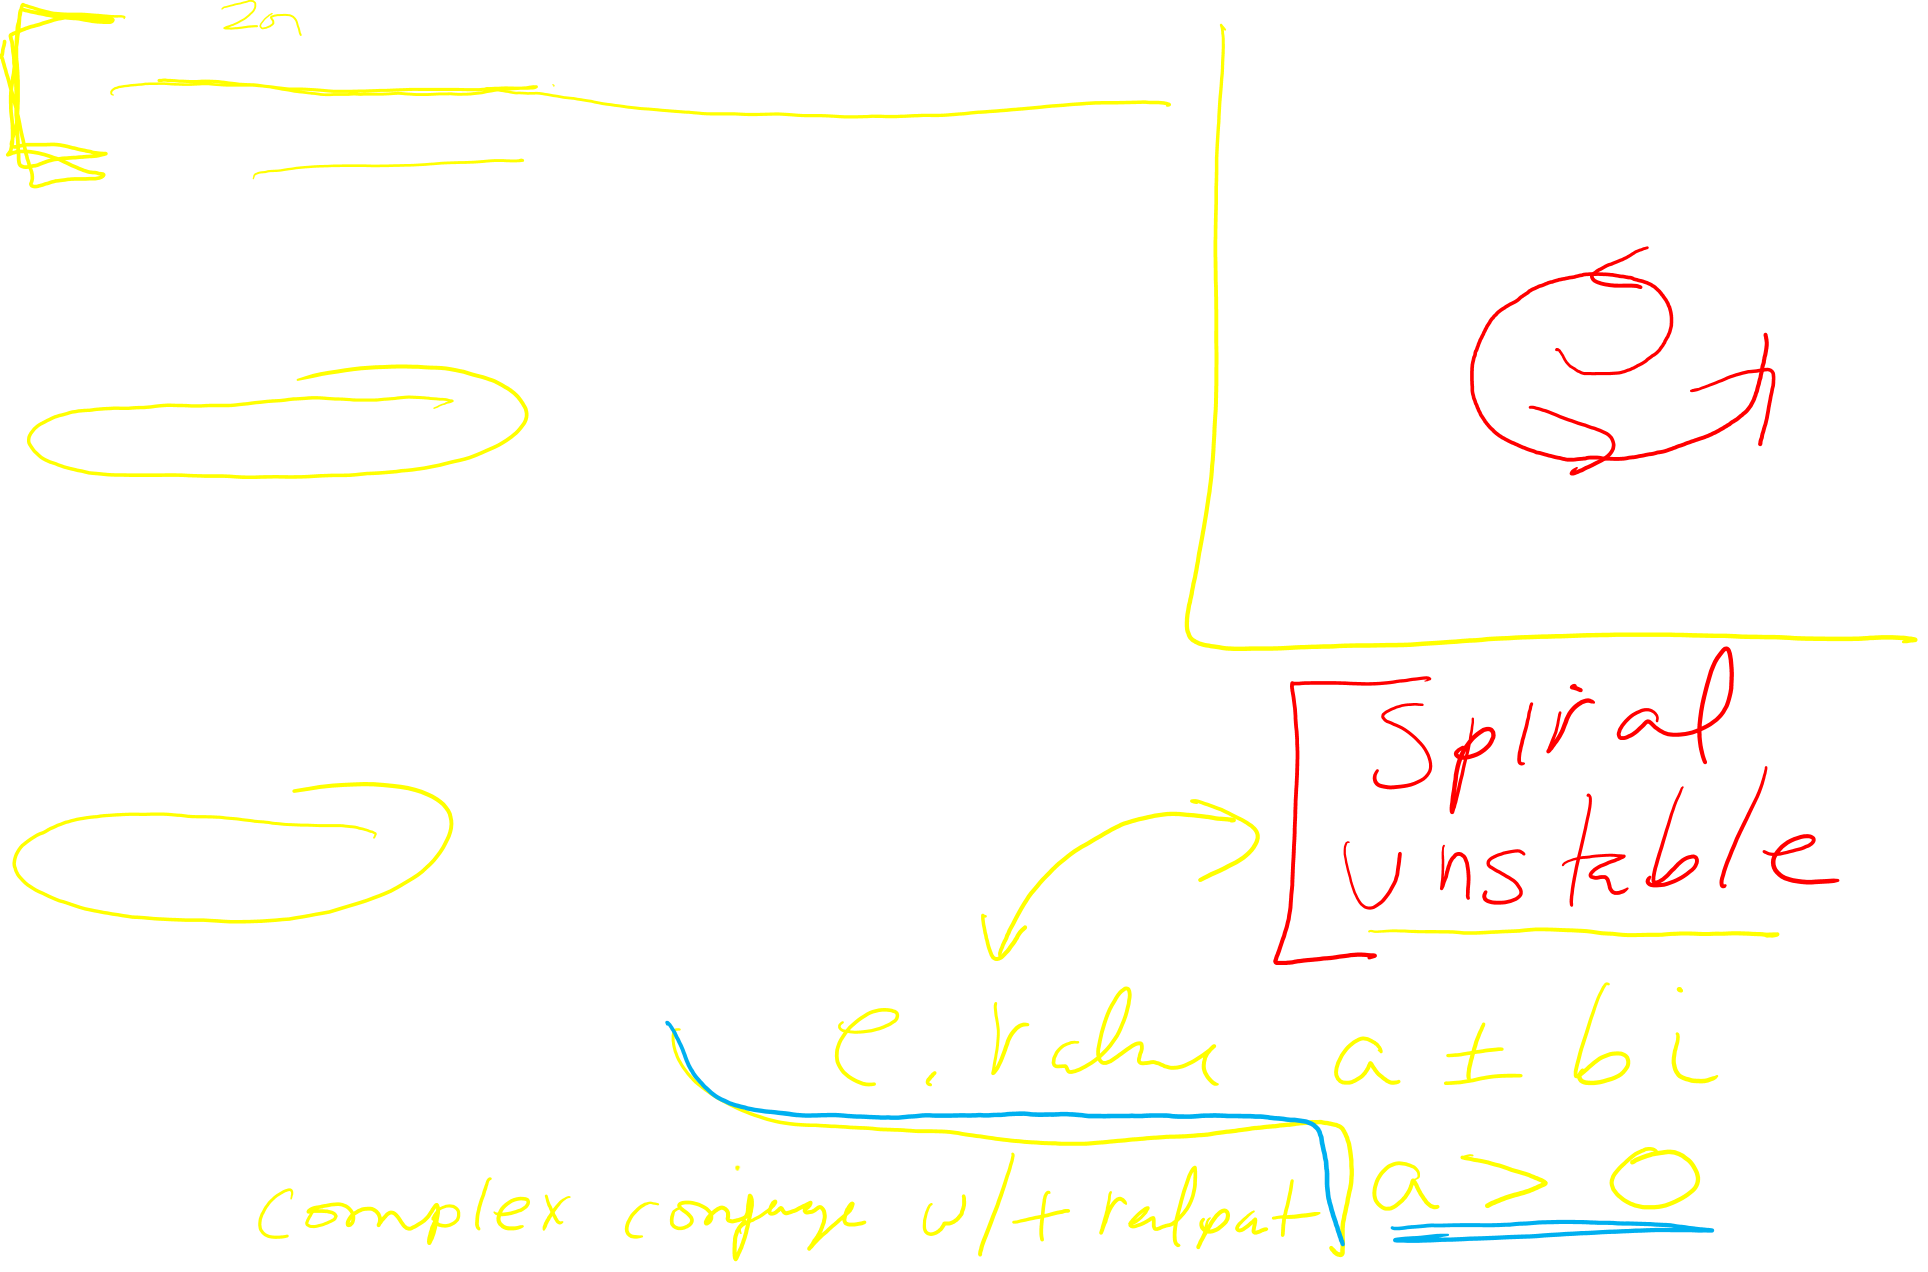 2n
Spiral
unstable
e.value a ± bi
complex conjuge w/ + real part a > 0